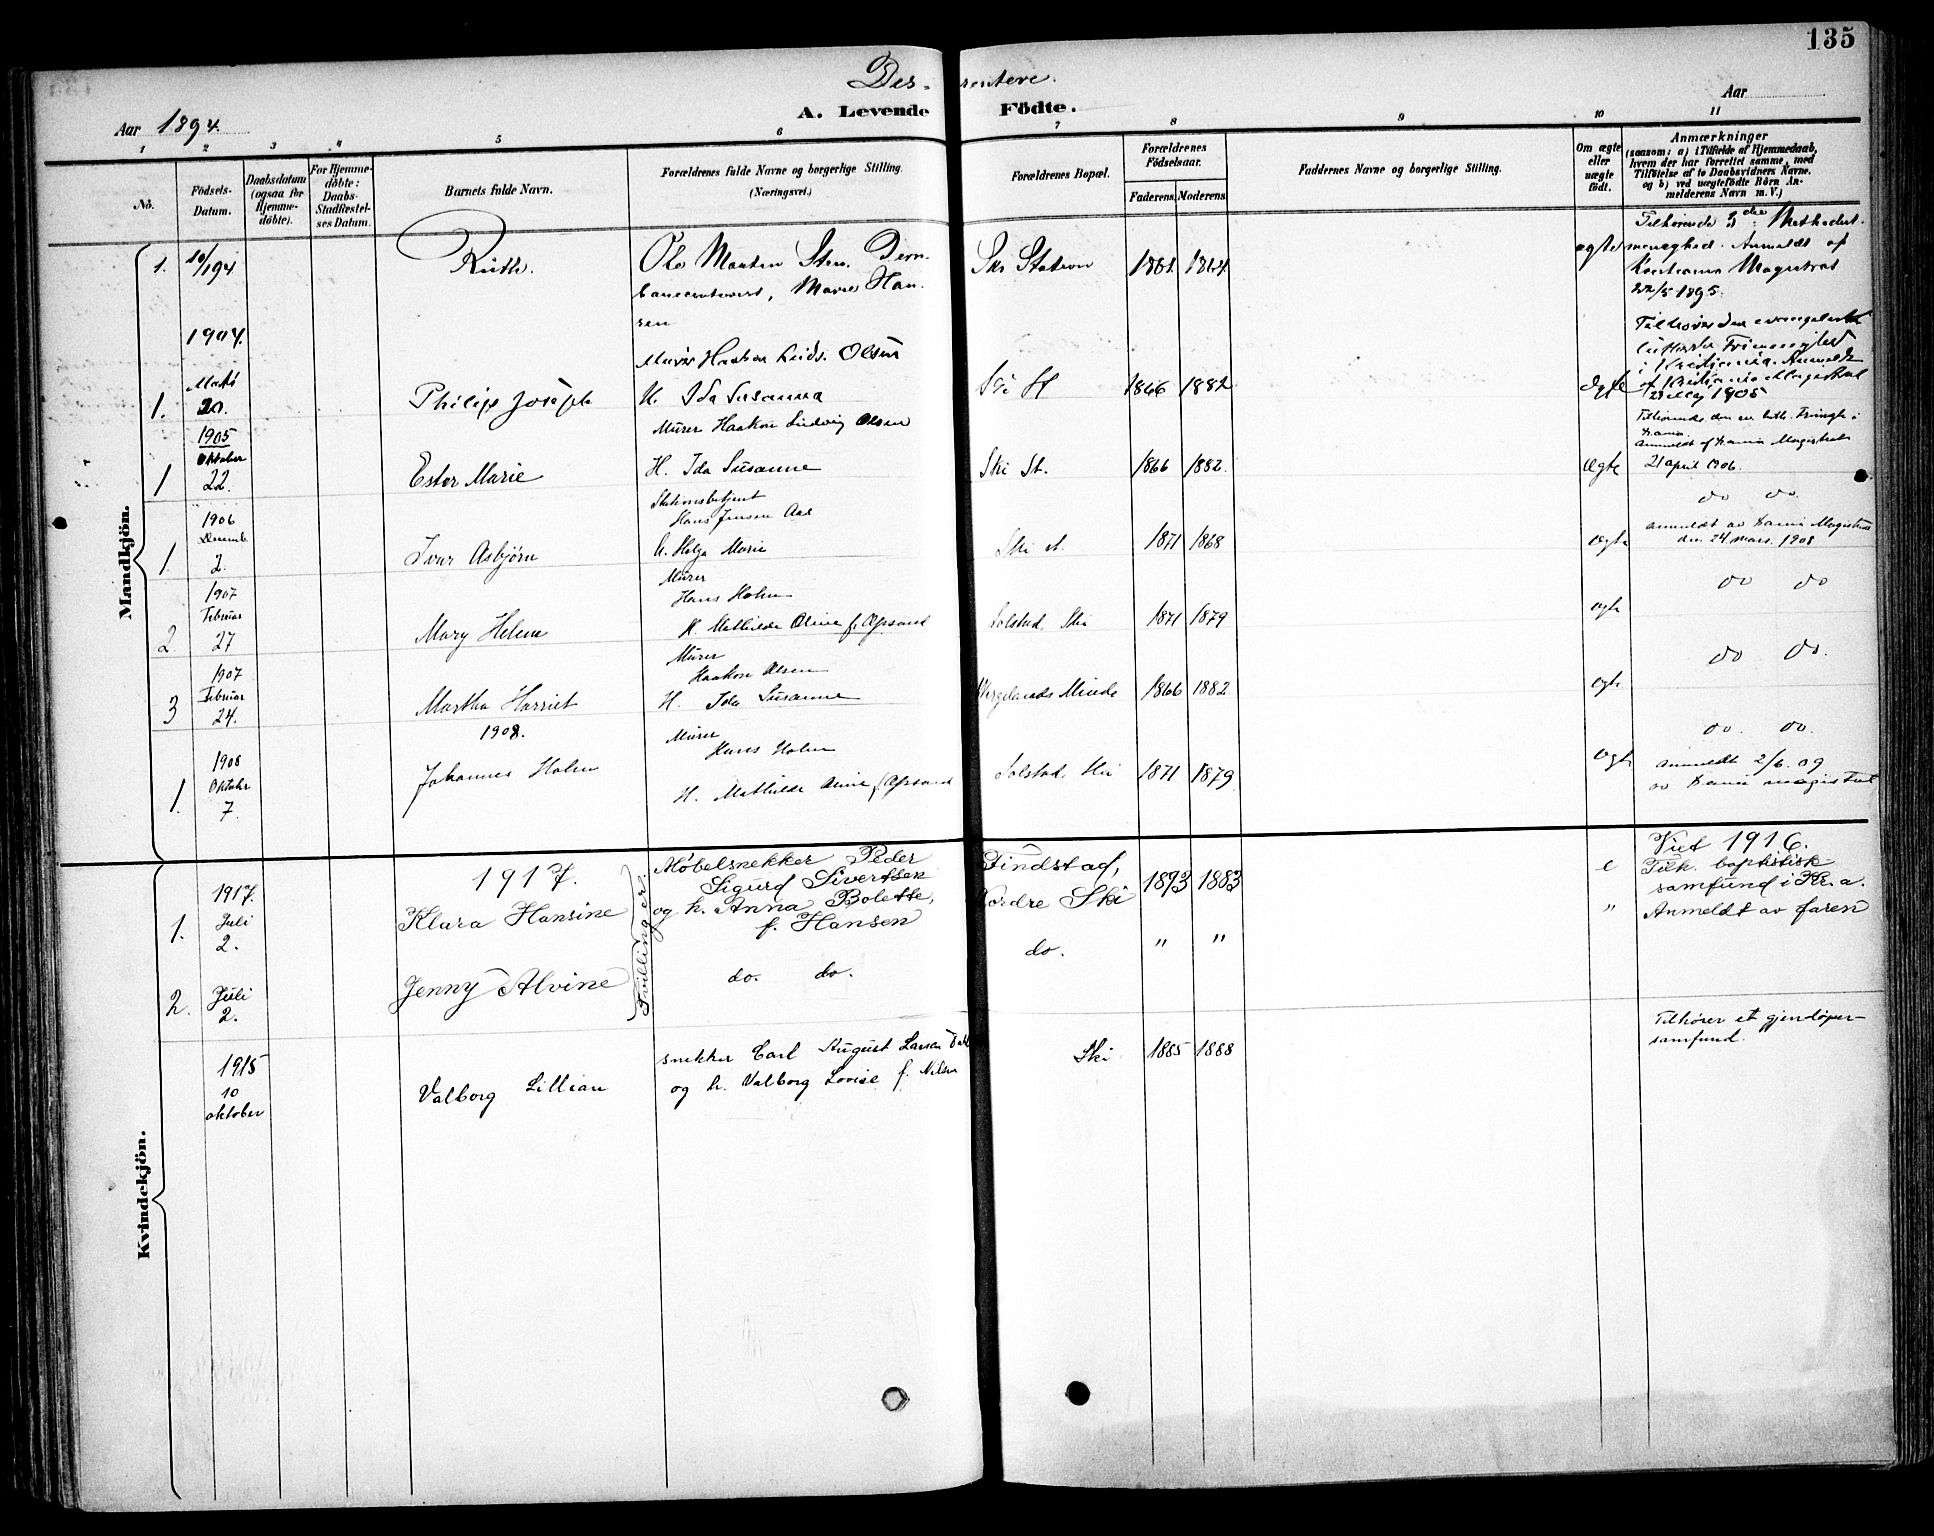 135
Dissentere.
A. Levende Födte.
Aar 1894.
Aar
1
2
3
4
5
6
7
8
9
10
11
No.
Födsels-
Datum.
Daabsdatum
(ogsaa for
Hjemme-
döbte).
For Hjemme-
döbte:
Daabs-
Stadfæstel-
ses Datum.
Barnets fulde Navn.
Forældrenes fulde Navne og borgerlige Stilling.
(Næringsvei.)
Forældrenes Bopæl.
Forældrenes
Födselsaar.
Faderens.
Moderens.
Faddernes Navne og borgerlige Stilling.
Om ægte
eller
uægte
födt.
Anmærkninger
(saasom: a) i Tilfælde af Hjemmedaab,
hvem der har forrettet samme, med
Tilföielse af to Daabsvidners Navne,
og b) ved uægtefödte Börn An-
melderens Navn m. V.)
Mandkjön.
1. 10/1 94 Ruth. Ole Sten. Jern-
Marie Han-
sen
Ski Station 1861 1864 ægte
Tilhørende 3die Methodist-
menighed. Anmeldt af
Kristiania Magistrat
22/5 1895.
1904.
Marts
20.
1. Philip Joseph
Murer Haakon Ludv. Olsen
H. Ida Susanna
Ski St 1866 1882 Ægte
Tilhører den evangelisk
lutherske Frimenighed
i Kristiania. Anmeldt
af Kristiania Magistrat
23 Maj 1905
1905
Oktober
22.
1 Ester Marie
Murer Haakon Ludvig Olsen
H. Ida Susanne
Ski St. 1866 1882. Ægte
Tilhørende den ev. luth. Frimgh. i
Krania.
Anmeldt af Krania Magistrat
21 april 1906.
1906
Decemb.
2.
1 Ivar Asbjørn
Stationsbetjent
Hans Jensen Aas
h. Helga Marie
Ski st. 1871 1868 Ægte
do do.
anmeldt av Krania Magistrat
den 24 mars. 1908
1907
Februar
27
2 Mary Helene
Murer
Hans Holm
H. Mathilde Oline f.
Solstad. Ski 1871 1879 Ægte
do do
1907
Februar
24.
3 Martha Harriet
Murer
Haakon Olsen
H. Ida Susanne
Wergelands Minde 1866 1882 Ægte
do do.
1908.
1908
Oktober
7.
1. Johannes Holm
Murer
Hans Holm
H. Mathilde Oline f.
Solstad. Ski 1871 1879. Ægte
do. do.
anmeldt 2/6. 09
av Krania magistrat
Kvindekjön.
1917.
1917.
Juli
2.
1. Klara Hansine
Tvillinger.
Møbelsnekker Peder
Sigurd Sivertsen
og h. Anna Bolette,
f. Hansen
Findstad,
Nordre Ski 1893 1883 e
Viet 1916.
Tilh. baptistisk
samfund i Kr.a.
Anmeldt av faren
2. Juli
2.
Jenny Alvine do. do. do. " " "
1915
10
oktober
Valborg Lillian
snekker Carl August Larsen
og h. Valborg Lovise f. Nilsen
Ski 1885 1888
Tilhører et gjendøper-
samfund.